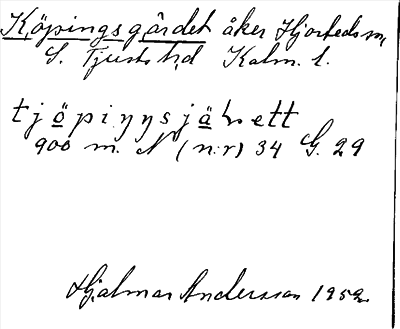 Köpingsgärdet åker Hjorteds sn,
S. Tjusts hd Kalm. l.
tjöpiŋŋsjäɽett
900 m. N (n:r) 34 G. 29
Hjalmar Andersson 1959.